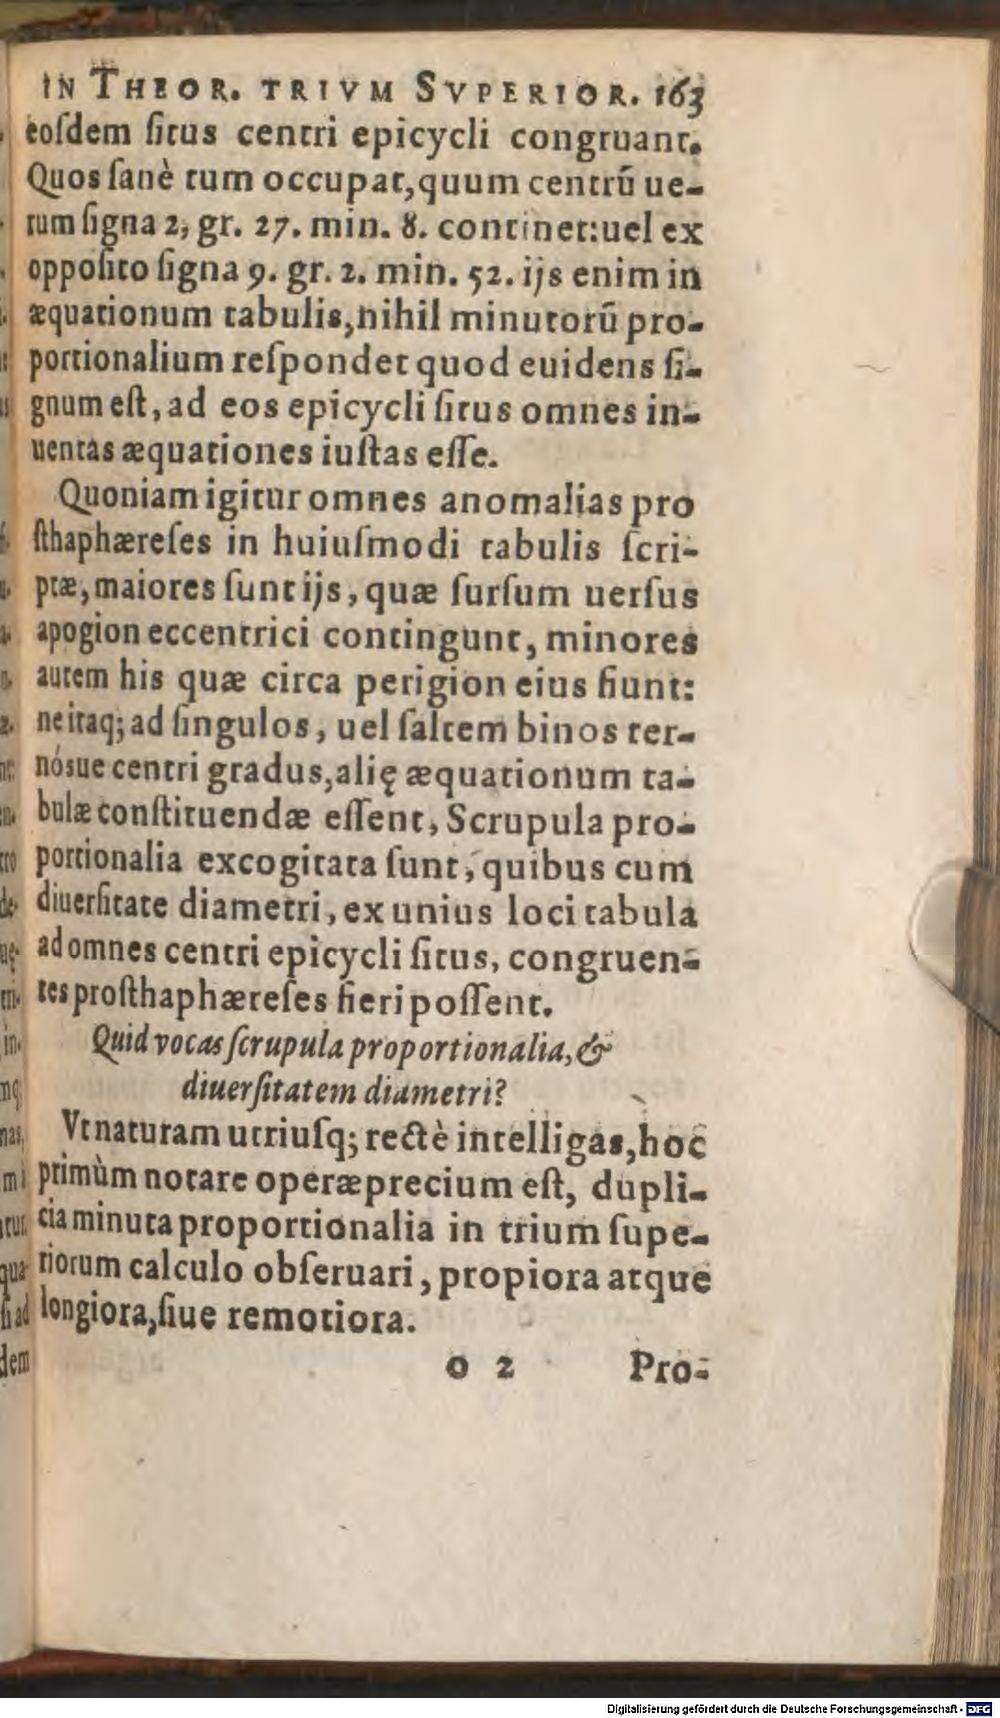 IN THEOR. TRIVM SVPERIOR. 163
eoſdem ſitus centri epicycli congruant.
Quos ſanè tum occupat, quum centrũ ue-
rum ſigna 2, gr. 27. min. 8. continet: uel ex
oppoſito ſigna 9. gr. 2. min. 52. ijs enim in
æquationum tabulis, nihil minutorũ pro-
portionalium reſpondet quod euidens ſi-
gnum eſt, ad eos epicycli ſitus omnes in-
uentas æquationes iuſtas eſſe.
Quoniam igitur omnes anomalias pro
ſthaphæreſes in huiuſmodi tabulis ſcri-
ptæ, maiores ſunt ijs, quæ ſurſum uerſus
apogion eccentrici contingunt, minores
autem his quæ circa perigion eius fiunt:
ne itaq; ad ſingulos, uel ſaltem binos ter-
nósue centri gradus, alię æquationum ta-
bulæ conſtituendæ eſſent, Scrupula pro-
portionalia excogitata ſunt, quibus cum
diuerſitate diametri, ex unius loci tabula
ad omnes centri epicycli ſitus, congruen-
tes proſthaphæreſes fieri poſſent.
Quid vocas ſcrupula proportionalia, &
diuerſitatem diametri?
Vt naturam utriuſq; rectè intelligas, hoc
primùm notare operæprecium eſt, dupli-
cia minuta proportionalia in trium ſupe-
riorum calculo obſeruari, propiora atque
longiora, ſiue remotiora.
o 2 Pro-
Digitalisierung gefördert durch die Deutsche Forschungsgemeinschaft - DFG